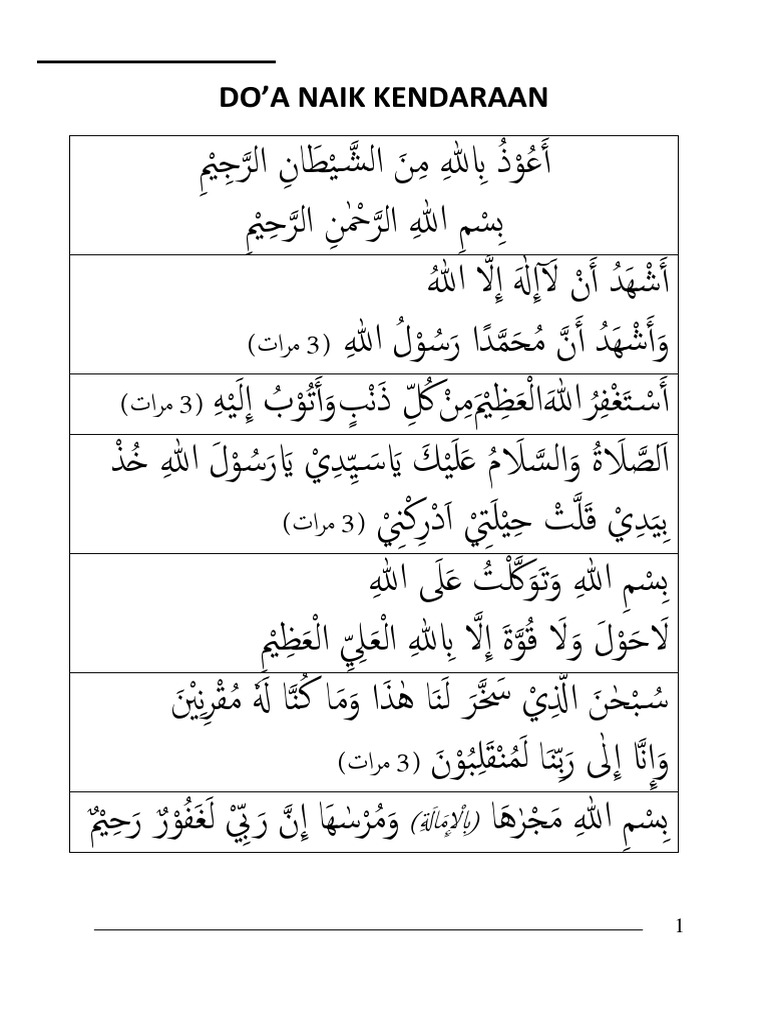 DO’A NAIK KENDARAAN
أَعُوْذُ بِاللهِ مِنَ الشَّيْطَانِ الرَّجِيْمِ
بِسْمِ اللهِ الرَّحْمٰنِ الرَّحِيْمِ
أَشْهَدُ أَنْ لَآإِلٰهَ إِلَّا اللهُ
وَأَشْهَدُ أَنَّ مُحَمَّدًا رَسُوْلُ اللهِ (3 مرات)
أَسْتَغْفِرُ اللهَ الْعَظِيْمَ مِنْ كُلِّ ذَنْبٍ وَأَتُوْبُ إِلَيْهِ (3 مرات)
اَلصَّلَاةُ وَالسَّلَامُ عَلَيْكَ يَاسَيِّدِيْ يَارَسُوْلَ اللهِ خُذْ
بِيَدِيْ قَلَّتْ حِيْلَتِيْ اَدْرِكْنِيْ (3 مرات)
بِسْمِ اللهِ وَتَوَكَّلْتُ عَلَى اللهِ
لَاحَوْلَ وَلَا قُوَّةَ إِلَّا بِاللهِ الْعَلِيِّ الْعَظِيْمِ
سُبْحٰنَ الَّذِيْ سَخَّرَ لَنَا هٰذَا وَمَا كُنَّا لَهٗ مُقْرِنِيْنَ
وَإِنَّا إِلٰى رَبِّنَا لَمُنْقَلِبُوْنَ (3 مرات)
بِسْمِ اللهِ مَجْرٰهَا (بِالْإِمَالَةِ) وَمُرْسٰهَا إِنَّ رَبِّيْ لَغَفُوْرٌ رَحِيْمٌ
1